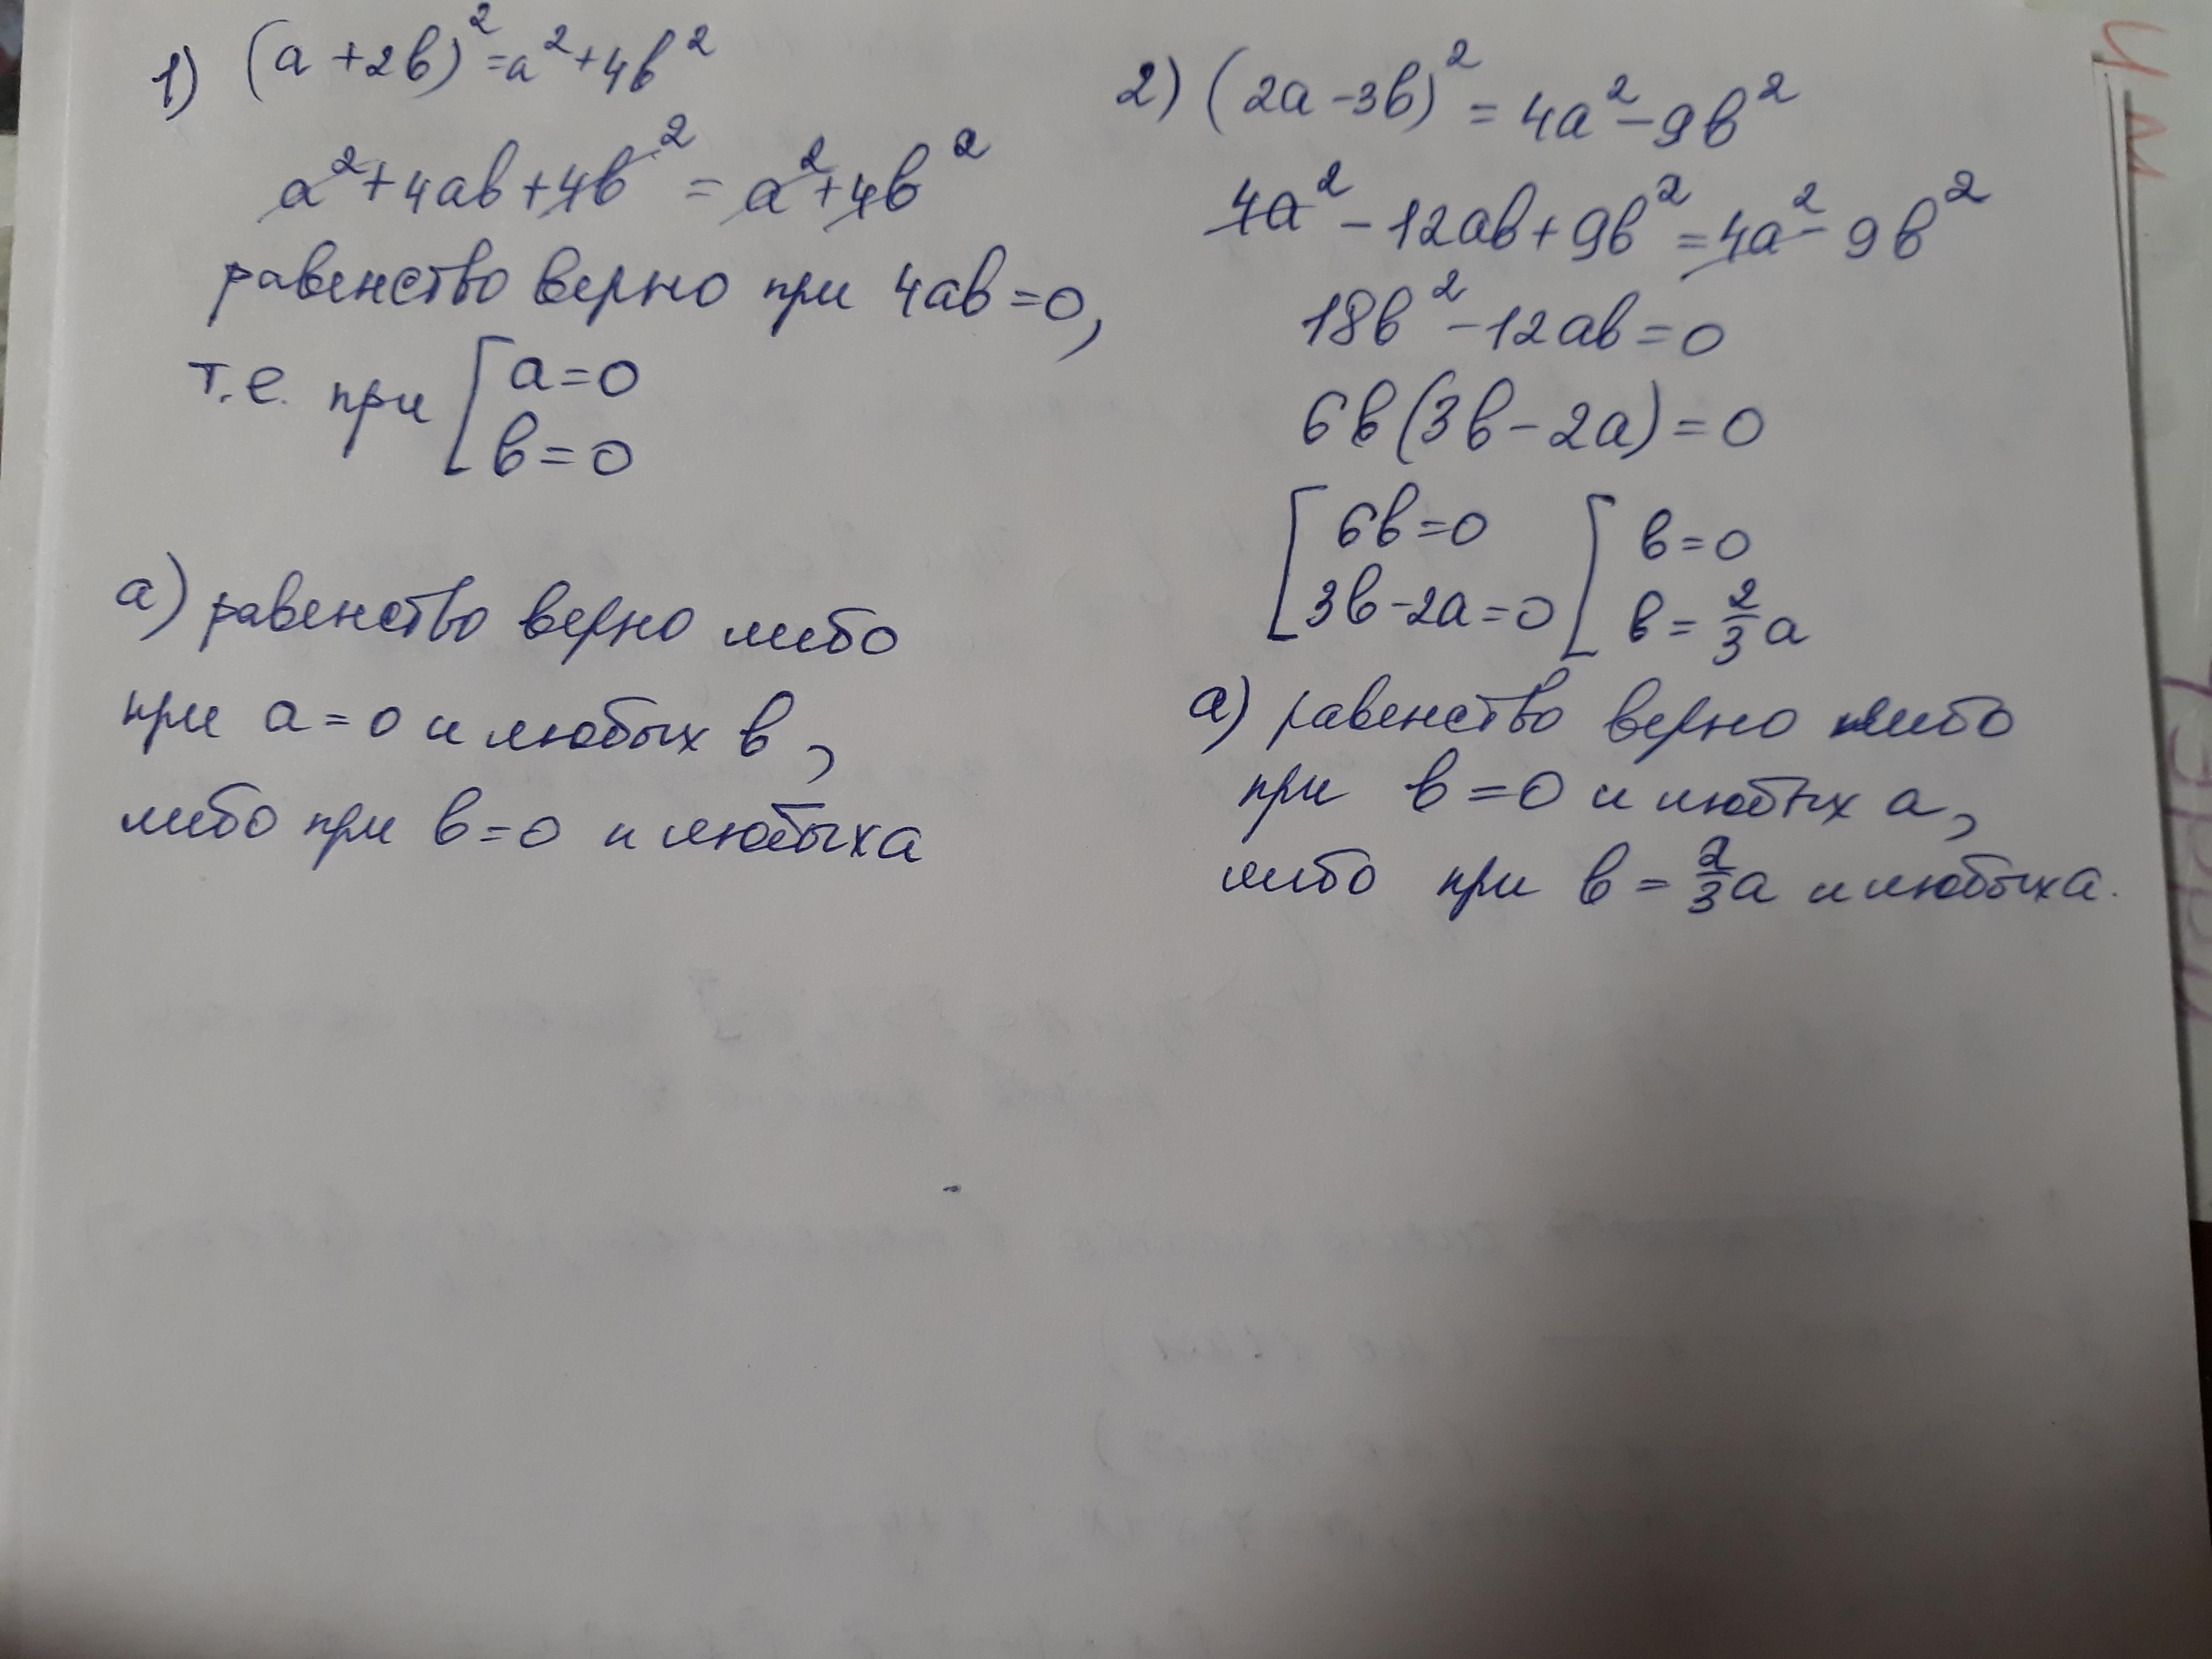 1) (a + 2b)² = a² + 4b²
a² + 4ab + 4b² = a² + 4b²
равенство верно при 4ab = 0,
т.е. при [ a = 0
b = 0
а) равенство верно либо
при a = 0 и любых b,
либо при b = 0 и любых a
2) (2a - 3b)² = 4a² - 9b²
4a² - 12ab + 9b² = 4a² - 9b²
18b² - 12ab = 0
6b(3b - 2a) = 0
[ 6b = 0 [ b = 0
3b - 2a = 0 b = 2/3 a
а) равенство верно либо
при b = 0 и любых a,
либо при b = 2/3 a и любых a.